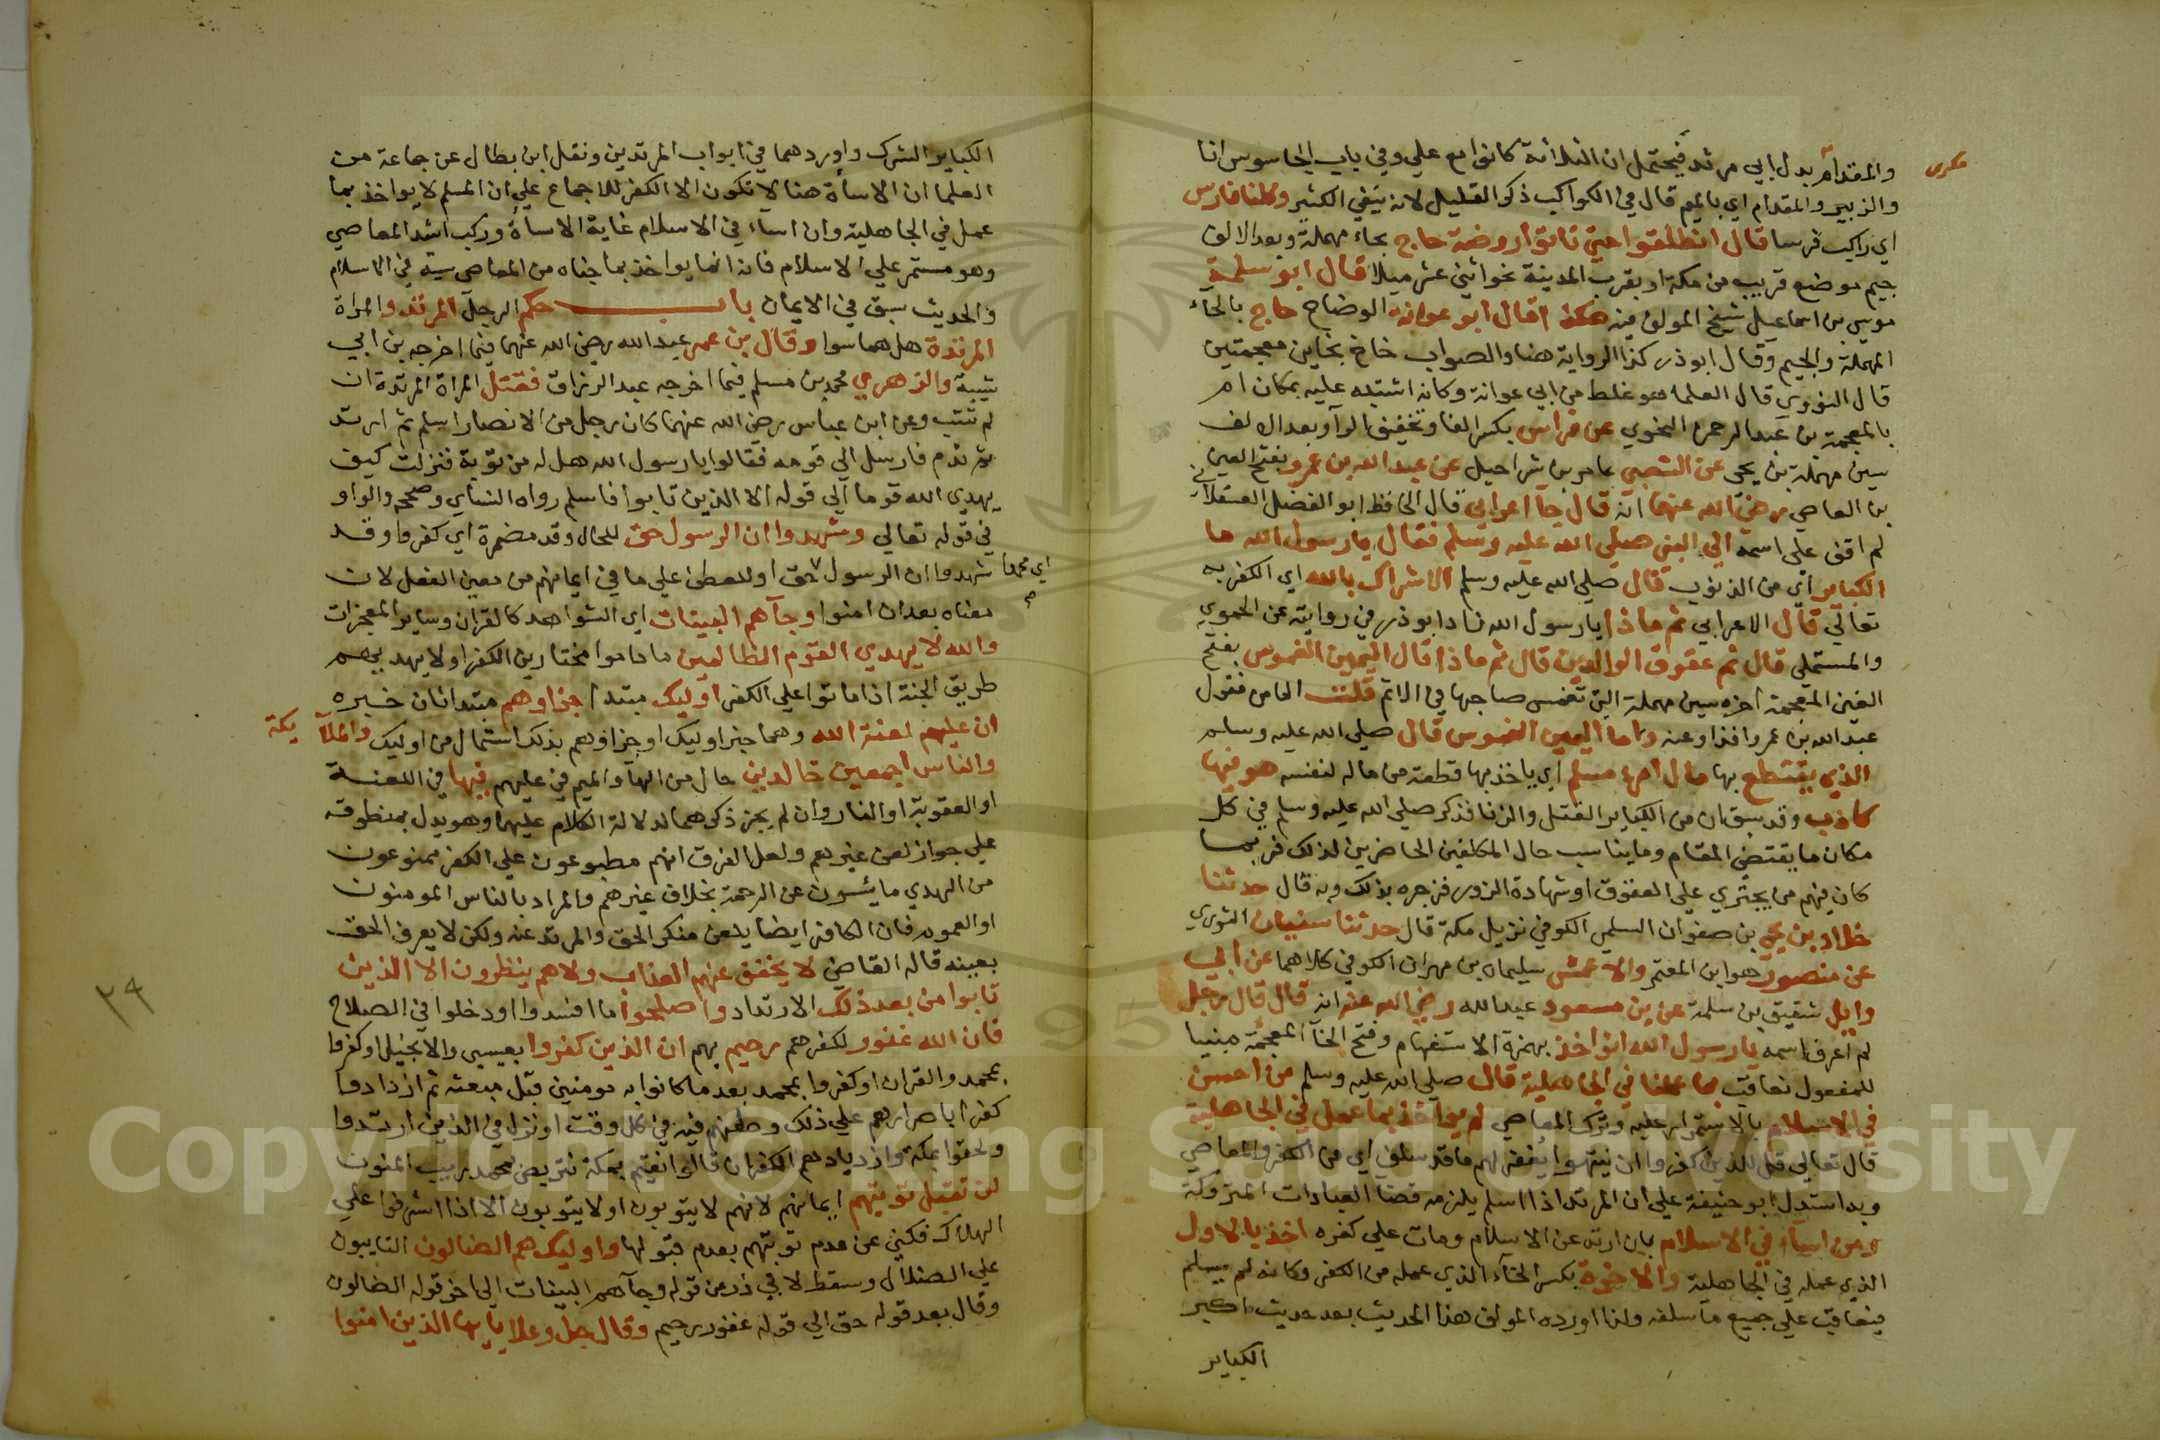 والمقدام بدل ابي مرثد فيحتمل ان الثلاثة كانوا مع علي وفي باب الجاسوس انا
والزبير والمقدام اي بالميم قال في الكواكب ذكر القليل لا ينفي الكثير وكلنا فارس
اي راكب فرسا قال انطلقوا حتي تاتوا روضة حاج بحاء مهملة وبعد الالف
جيم موضع قريب من مكة او بقرب المدينة نحو اثني عشر ميلا قال ابو سلمة
موسي بن اسماعيل شيخ المولف فيه هكذا قال ابو عوانة الوضاح حاج بالحاء
المهملة والجيم وقال ابو ذر كذا الرواية هنا والصواب خاخ بخاين معجمتين
قال النووي قال العلما هو غلط من ابي عوانة وكانه اشتبه عليه بمكان ام
بالمعجمة بن عبد الرحمن النحوي عن فراس بكسر الفا وتخفيف الراء وبعد الالف
سين مهملة بن يحيى عن الشعبي عامر بن شراحيل عن عبد الله بن عمرو بفتح العين
بن العاص رضي الله عنهما انه قال جآ اعرابي قال الحافظ ابو الفضل العسقلاني
لم اقف علي اسمه الي النبي صلي الله عليه وسلم فقال يا رسول الله ما
الكباير اي من الذنوب قال صلي الله عليه وسلم الاشراك بالله اي الكفر به
تعالي قال الاعرابي ثم ماذا يا رسول الله زاد ابو ذر في روايته عن الحموي
والمستملي قال ثم عقوق الوالدين قال ثم ماذا قال اليمين الغموس بفتح
الغين المعجمة اخره سين مهملة التي تغمس صاحبها في الاثم قلت
عبد الله بن عمرو وما اليمين الغموس قال صلي الله عليه وسلم
الذي يقتطع بها مال امرء مسلم اي ياخذ بها قطعة من ماله لنفسه هو فيها
كاذب وقد سبق ان من الكباير القتل والزنا فذكر صلي الله عليه وسلم في كل
مكان ما يقتضي المقام وما يناسب حال المكلفين الحاضرين لذلك فربما
كان فيهم من يجتري علي العقوق او شهادة الزور فزجره بذلك وبه قال حدثنا
خلاد بن يحيى بن صفوان السلمي الكوفي نزيل مكة قال حدثنا سفيان الثوري
عن منصور هو ابن المعتمر والاعمش سليمان بن مهران الكوفي كلاهما عن ابي
وايل شقيق بن سلمة عن بن مسعود عبد الله رضي الله عنه انه قال قال رجل
لم اعرف اسمه يا رسول الله انواخذ بهمزة الاستفهام وفتح الخآ المعجمة مبنيا
للمفعول نعاقب بما عملنا في الجاهلية قال صلي الله عليه وسلم من احسن
في الاسلام بالاستمرار عليه وترك المعاصي لم يواخذ بما عمل في الجاهلية
قال تعالي قل للذين كفروا ان ينتهوا يغفر لهم ما قد سلف اي من الكفر والمعاصي
وبه استدل ابو حنيفة علي ان المرتد اذا اسلم يلزمه قضا العبادات المتروكة
ومن اسآء في الاسلام بان ارتد عن الاسلام ومات علي كفره اخذ بالاول
الذي عمله في الجاهلية والاخر بكسر الخآء الذي عمله من الكفر وكانه لم يسلم
فيعاقب علي جميع ما سلفه ولذا اورده المولف هذا الحديث بعد حديث اكبر
الكباير
الكباير الشرك واوردهما في ابواب المرتدين ونقل ابن بطال عن جماعة من
العلما ان الاساة هنا لا تكون الا الكفر للاجماع علي ان المسلم لا يواخذ بما
عمل في الجاهلية وان اسآء في الاسلام غاية الاساة وركب اشد المعاصي
وهو مستمر علي الاسلام فانه انما يواخذ بما جناه من المعاصي في الاسلام
والحديث سبق في الايمان باب حكم الرجل المرتد والمراة
المرتدة هل هما سوا وقال بن عمر عبد الله رضي الله عنهما فيما اخرجه بن ابي
شيبة والزهري محمد بن مسلم فيما اخرجه عبد الرزاق فقتل المراة المرتدة ان
لم تتب وعن ابن عباس رضي الله عنهما كان رجل من الانصار اسلم ثم ارتد
ثم ندم فارسل الي قومه فقالوا يا رسول الله هل له من توبة فنزلت كيف
يهدي الله قوما الي قوله الا الذين تابوا فاسلم رواه النسأي وصححه والواو
في قوله تعالي وشهدوا ان الرسول حق للحال وقد مضمرة اي كفروا وقد
شهدوا ان الرسول حق او للعطف علي ما في ايمانهم من معني الفعل لان
معناه بعد ان امنوا وجآهم البينات اي الشواهد كالقران وساير المعجزات
والله لا يهدي القوم الظالمين ما داموا مختارين الكفر او لا يهديهم
طريق الجنة اذا ماتوا علي الكفر اوليك مبتدا جزاوهم مبتدا ثان خبره
ان عليهم لعنة الله وهما خبر اوليك او جزاوهم بدل اشتمال من اوليك والملآيكة
والناس اجمعين خالدين حال من الهآء والميم في عليهم فيها في اللعنة
او العقوبة او النار وان لم يجر ذكرهما لدلالة الكلام عليهما وهو يدل بمنطوقه
علي جواز لعن غيرهم ولعل الفرق انهم مطبوعون علي الكفر ممنوعون
من الهدي مايئسون من الرحمة بخلاف غيرهم والمراد بالناس المومنون
او العموم فان الكافر ايضا يلعن منكر الحق والمرتد عنه ولكن لا يعرف الحق
بعينه قاله القاضي لا يخفف عنهم العذاب ولا هم ينظرون الا الذين
تابوا من بعد ذلك الارتداد واصلحوا ما افسدوا او دخلوا في الصلاح
فان الله غفور لكفرهم رحيم بهم ان الذين كفروا بعيسي والانجيل او كفروا
بمحمد والقران او كفروا بمحمد بعد ما كانوا به مومنين قبل مبعثه ثم ازدادوا
كفرا باصرارهم علي ذلك وطعنهم فيه في كل وقت او نزل في الذين ارتدوا
ولحقوا بمكة وازديادهم الكفر ان قالوا نقيم بمكة نتربص بمحمد ريب المنون
لن تقبل توبتهم ايمانهم لانهم لا يتوبون او لا يتوبون الا اذا اشرفوا علي
الهلاك فكني عن عدم توبتهم بعدم قبولها واوليك هم الضالون الثابتون
علي الضلال وسقط لابي ذر من قوله وجآهم البينات الي اخر قوله الضالون
وقال بعد قوله حق الي قوله غفور رحيم وقال جل وعلا يا ايها الذين امنوا
٢٩
Copyright © King Saud University